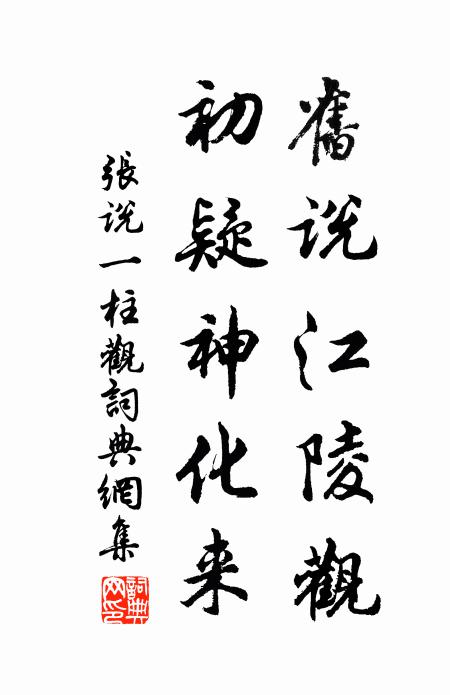 舊説江陵觀
初疑神化来
張説一柱觀詞典網集
詞典網印